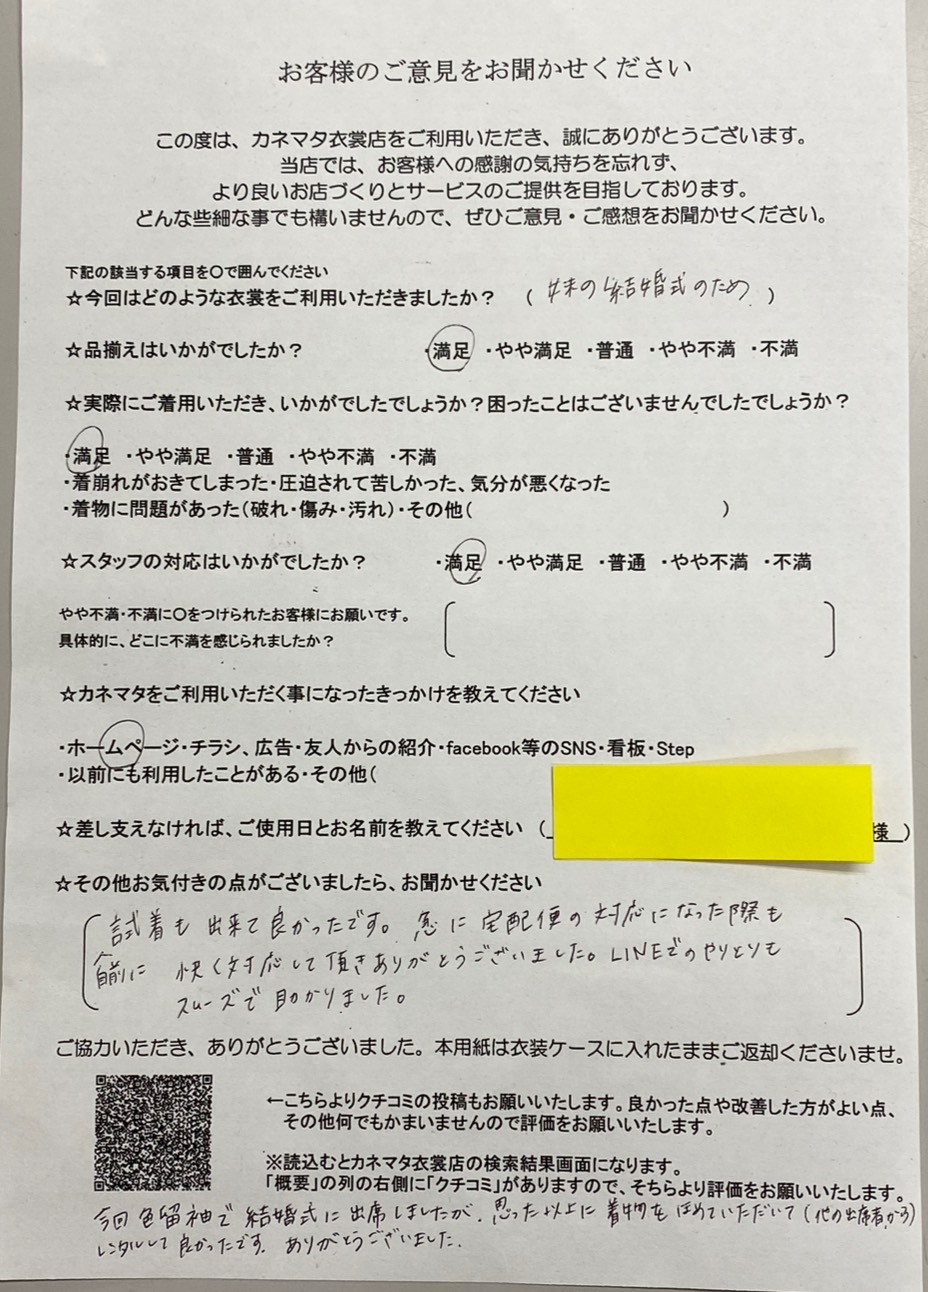 お客様のご意見をお聞かせください
この度は、カネマタ衣裳店をご利用いただき、誠にありがとうございます。
当店では、お客様への感謝の気持ちを忘れず、
より良いお店づくりとサービスのご提供を目指しております。
どんな些細な事でも構いませんので、ぜひご意見・ご感想をお聞かせください。
下記の該当する項目を〇で囲んでください
☆今回はどのような衣裳をご利用いただきましたか？ （ 妹の結婚式のため ）
☆品揃えはいかがでしたか？ ・満足 ・やや満足 ・普通 ・やや不満 ・不満
☆実際にご着用いただき、いかがでしたでしょうか？困ったことはございませんでしたでしょうか？
・満足 ・やや満足 ・普通 ・やや不満 ・不満
・着崩れがおきてしまった・圧迫されて苦しかった、気分が悪くなった
・着物に問題があった（破れ・傷み・汚れ）・その他（ ）
☆スタッフの対応はいかがでしたか？ ・満足 ・やや満足 ・普通 ・やや不満 ・不満
やや不満・不満に〇をつけられたお客様にお願いです。
具体的に、どこに不満を感じられましたか？
☆カネマタをご利用いただく事になったきっかけを教えてください
・ホームページ・チラシ、広告・友人からの紹介・facebook等のSNS・看板・Step
・以前にも利用したことがある・その他（
☆差し支えなければ、ご使用日とお名前を教えてください （ 様 ）
☆その他お気付きの点がございましたら、お聞かせください
試着も出来て良かったです。急に宅配便の対応になった際も
前に 快く対応して頂きありがとうございました。LINEでのやりとりも
スムーズで助かりました。
ご協力いただき、ありがとうございました。本用紙は衣装ケースに入れたままご返却くださいませ。
←こちらよりクチコミの投稿もお願いいたします。良かった点や改善した方がよい点、
その他何でもかまいませんので評価をお願いいたします。
※読込むとカネマタ衣裳店の検索結果画面になります。
「概要」の列の右側に「クチコミ」がありますので、そちらより評価をお願いいたします。
今回色留袖で結婚式に出席しましたが、思った以上に着物をほめていただいて（他の出席者から）
レンタルして良かったです。ありがとうございました。